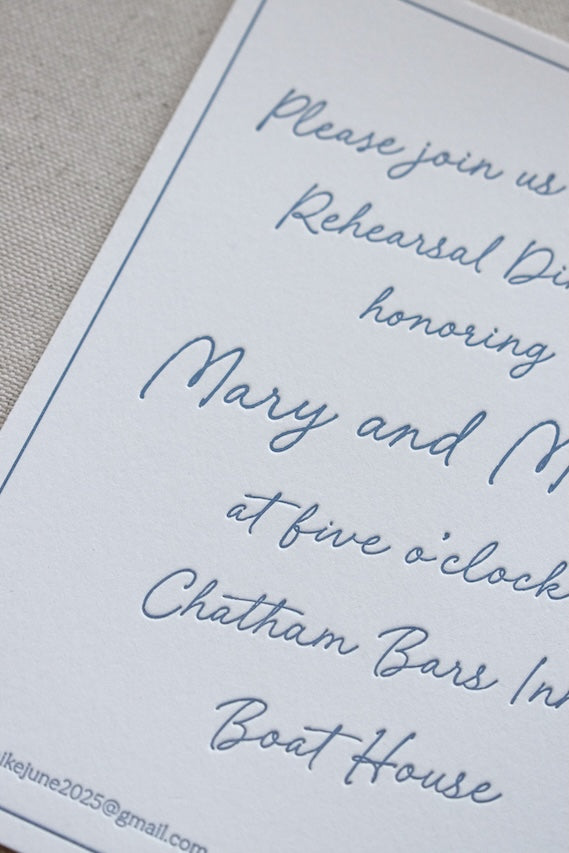 Please join us
Rehearsal
honoring
Mary and
at five o'clock
Chatham Bars
Boat House
ikejune2025@gmail.com